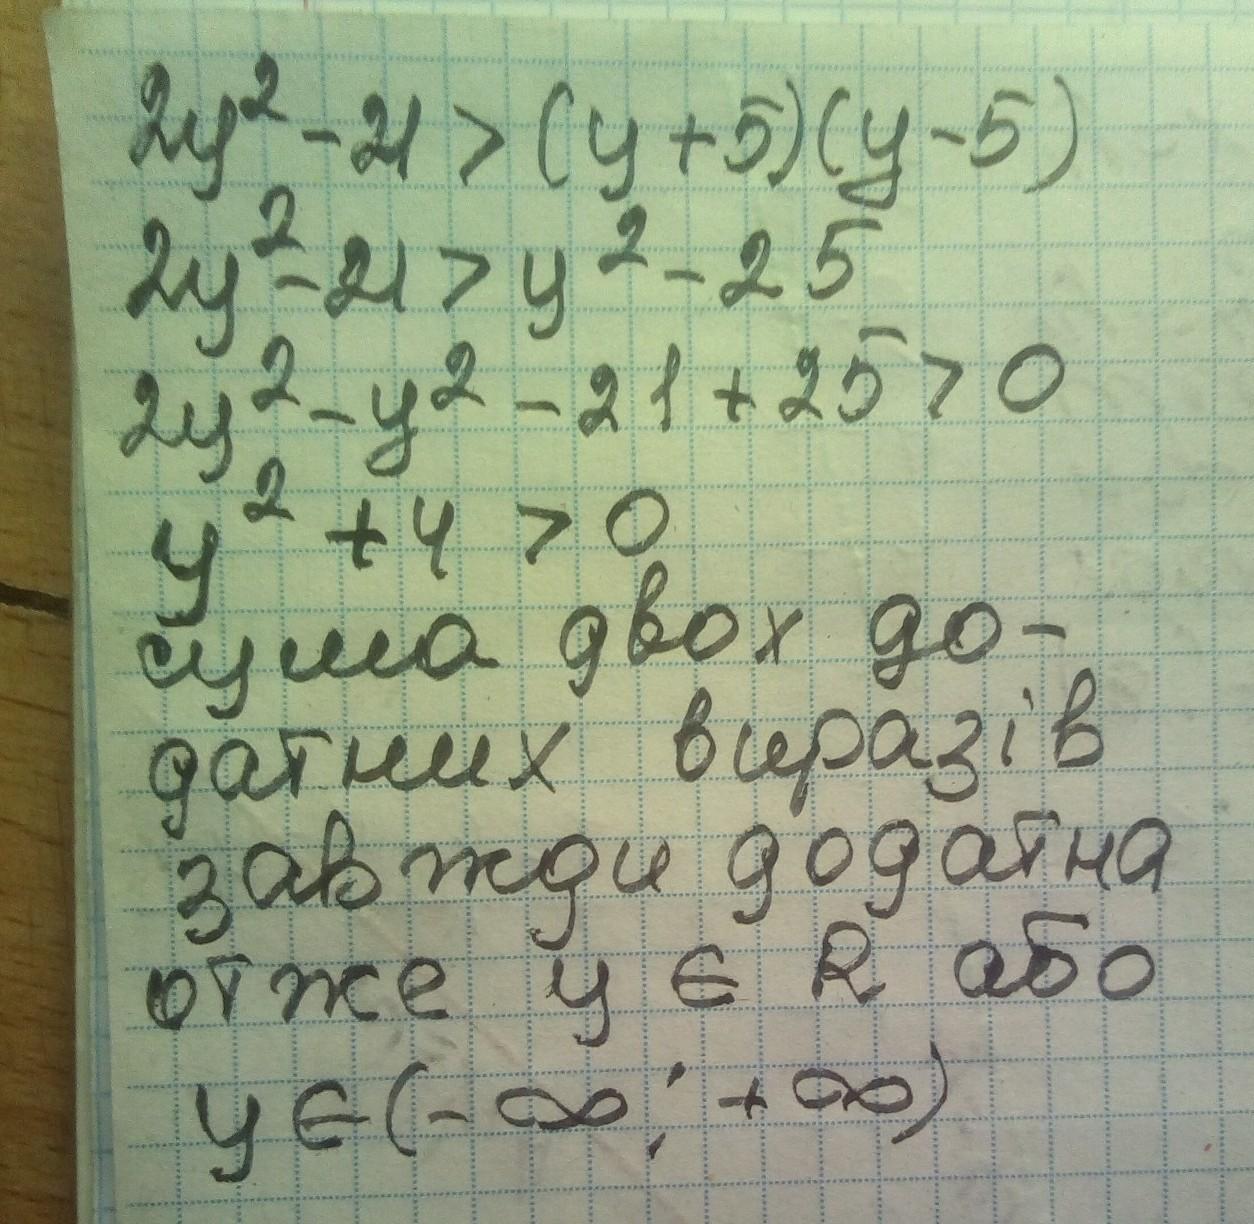 2y² - 21 > (y + 5)(y - 5)
2y² - 21 > y² - 25
2y² - y² - 21 + 25 > 0
y² + 4 > 0
сума двох до-
датних виразів
завжди додатна
отже y ∈ R або
y ∈ (- ∞ ; + ∞)